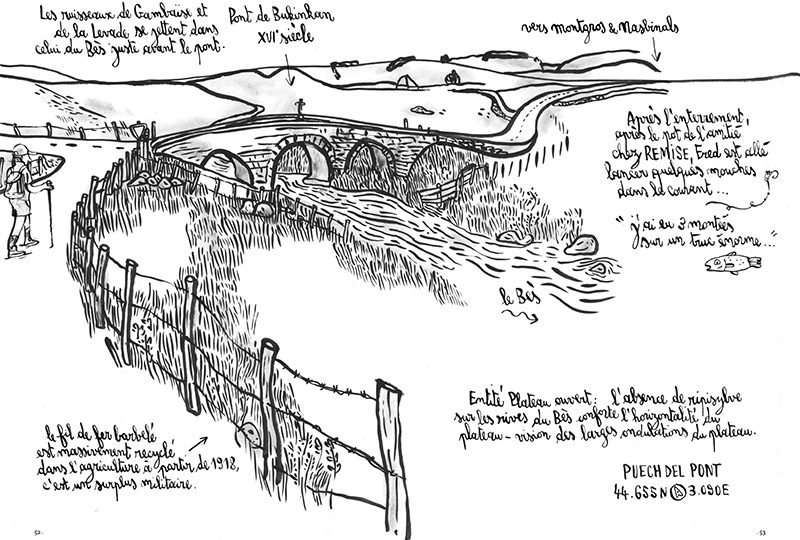 Les ruisseaux de Gambaïse et
de la Levade se jettent dans
celui du Bès juste avant le pont.
Pont de Bukinkan
XVIe siècle
vers montgros & Nasbinals
Après l'enterrement,
après le pot de l'amitié
chez REMISE, Fred est allé
lancer quelques mouches
dans le courant...
"j'ai eu 3 montées
sur un truc énorme..."
le Bès
Entité Plateau ouvert : l'absence de ripisylve
sur les rives du Bès conforte l'horizontalité du
plateau - vision des larges ondulations du plateau.
le fil de fer barbelé
est massivement recyclé
dans l'agriculture à partir de 1918,
c'est un surplus militaire.
PUECH DEL PONT
44.655N 3.090E
52.
.53